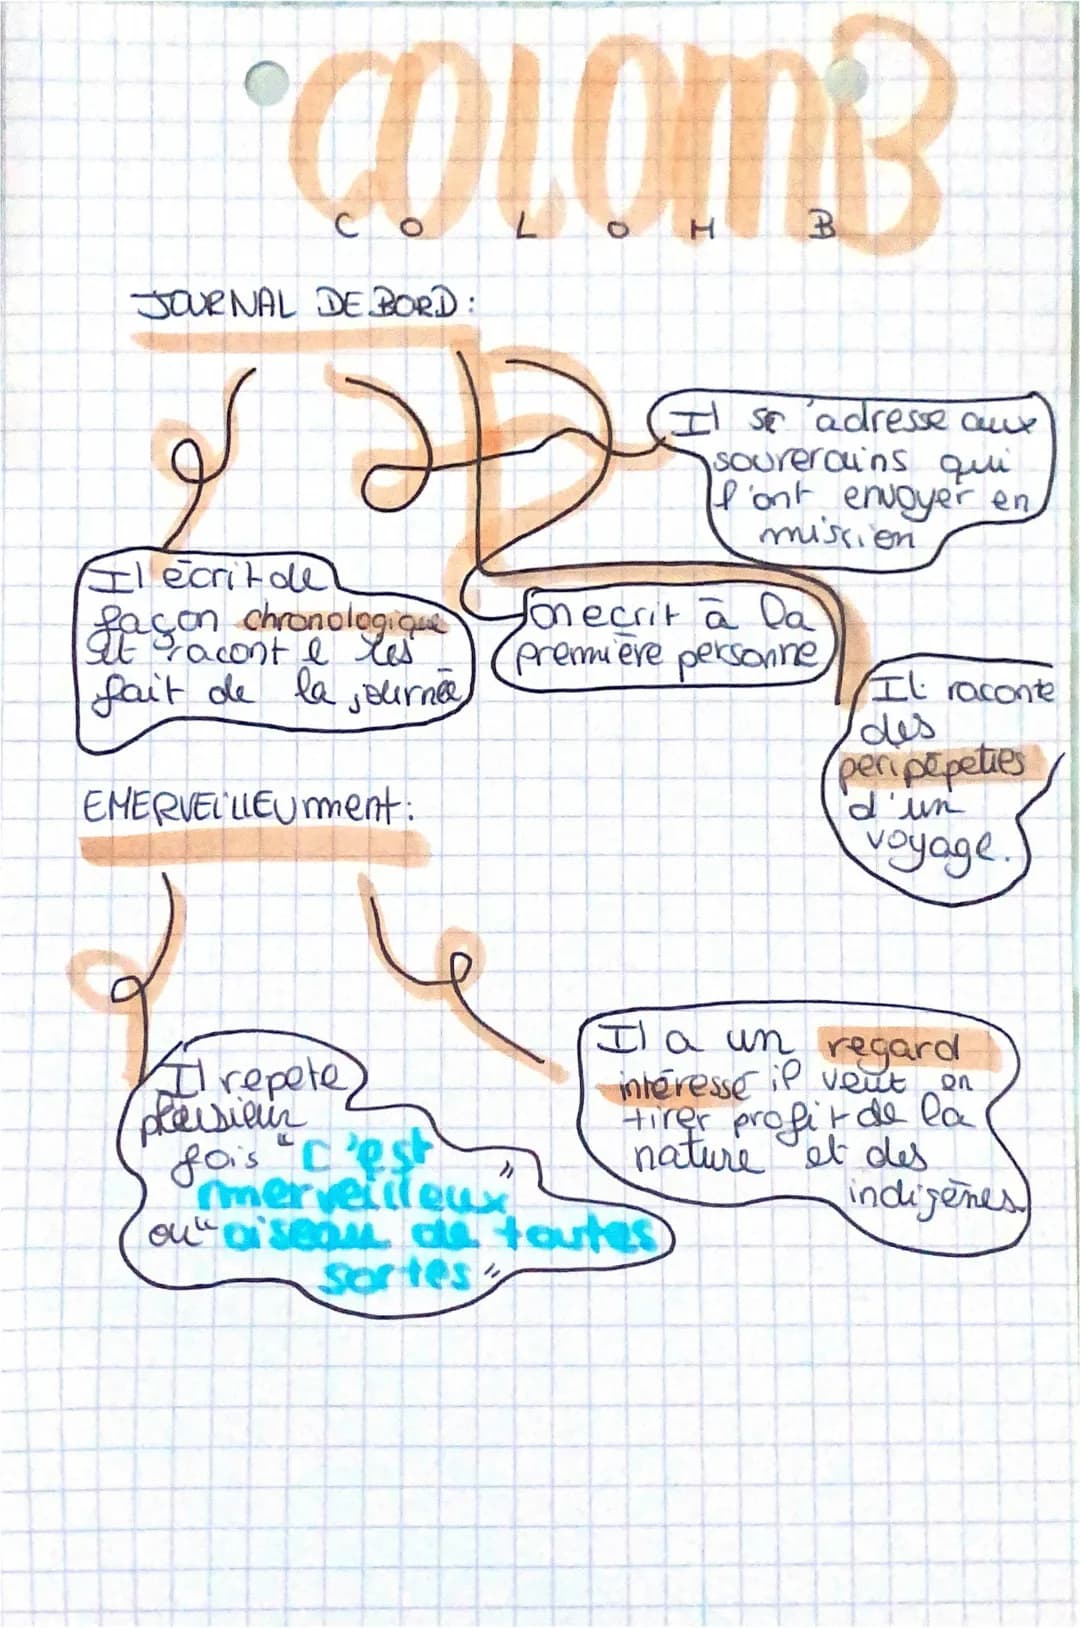 COLOMB
C O L O M B
JOURNAL DE BORD :
Il se 'adresse aux
souverains qui
l'ont envoyer en
mission
Il écrit de
façon chronologique
et racont e les
fait de la journée
on ecrit à la
première personne
Il raconte
des
peripépeties
d'un
voyage.
EMERVEILLEUrment :
Il repete
plusieur
fois "C'est
merveilleux "
ou "oiseau de toutes
sortes "
Il a un regard
intéressé il veut en
tirer profit de la
nature et des
indigènes.